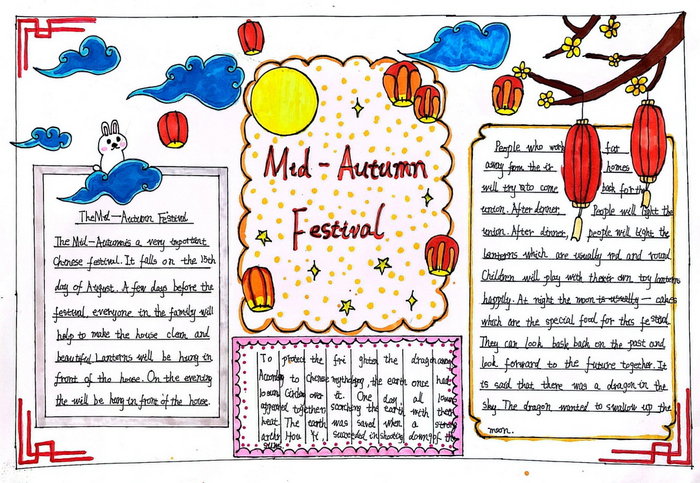 Mid-Autumn
Festival
The Mid-Autumn Festival
The Mid-Autumn is a very important
Chinese festival. It falls on the 15th
day of August. A few days before the
festival, everyone in the family will
help to make the house clean and
beautiful Lanterns will be hung in
front of the house. On the evening
the will be hung in front of the house.
To protect the frighten the dragon
According to Chinese mythology, the earth once had
over it. One day, all
appeared together searching the earth with their
heat. The earth was saved when a
Hou Yi succeeded in shooting down of the
People who work far
away from the it homes
will try to come back for the
union. After dinner, People will light the
union. After dinner, people will light the
lanterns which are usually red and round
Children will play with their own toy lanterns
happily. At night the moon is usually - cakes
which are the special food for this festival.
They can look back on the past and
look forward to the future together. It
is said that there was a dragon in the
sky. The dragon wanted to swallow up the
moon.